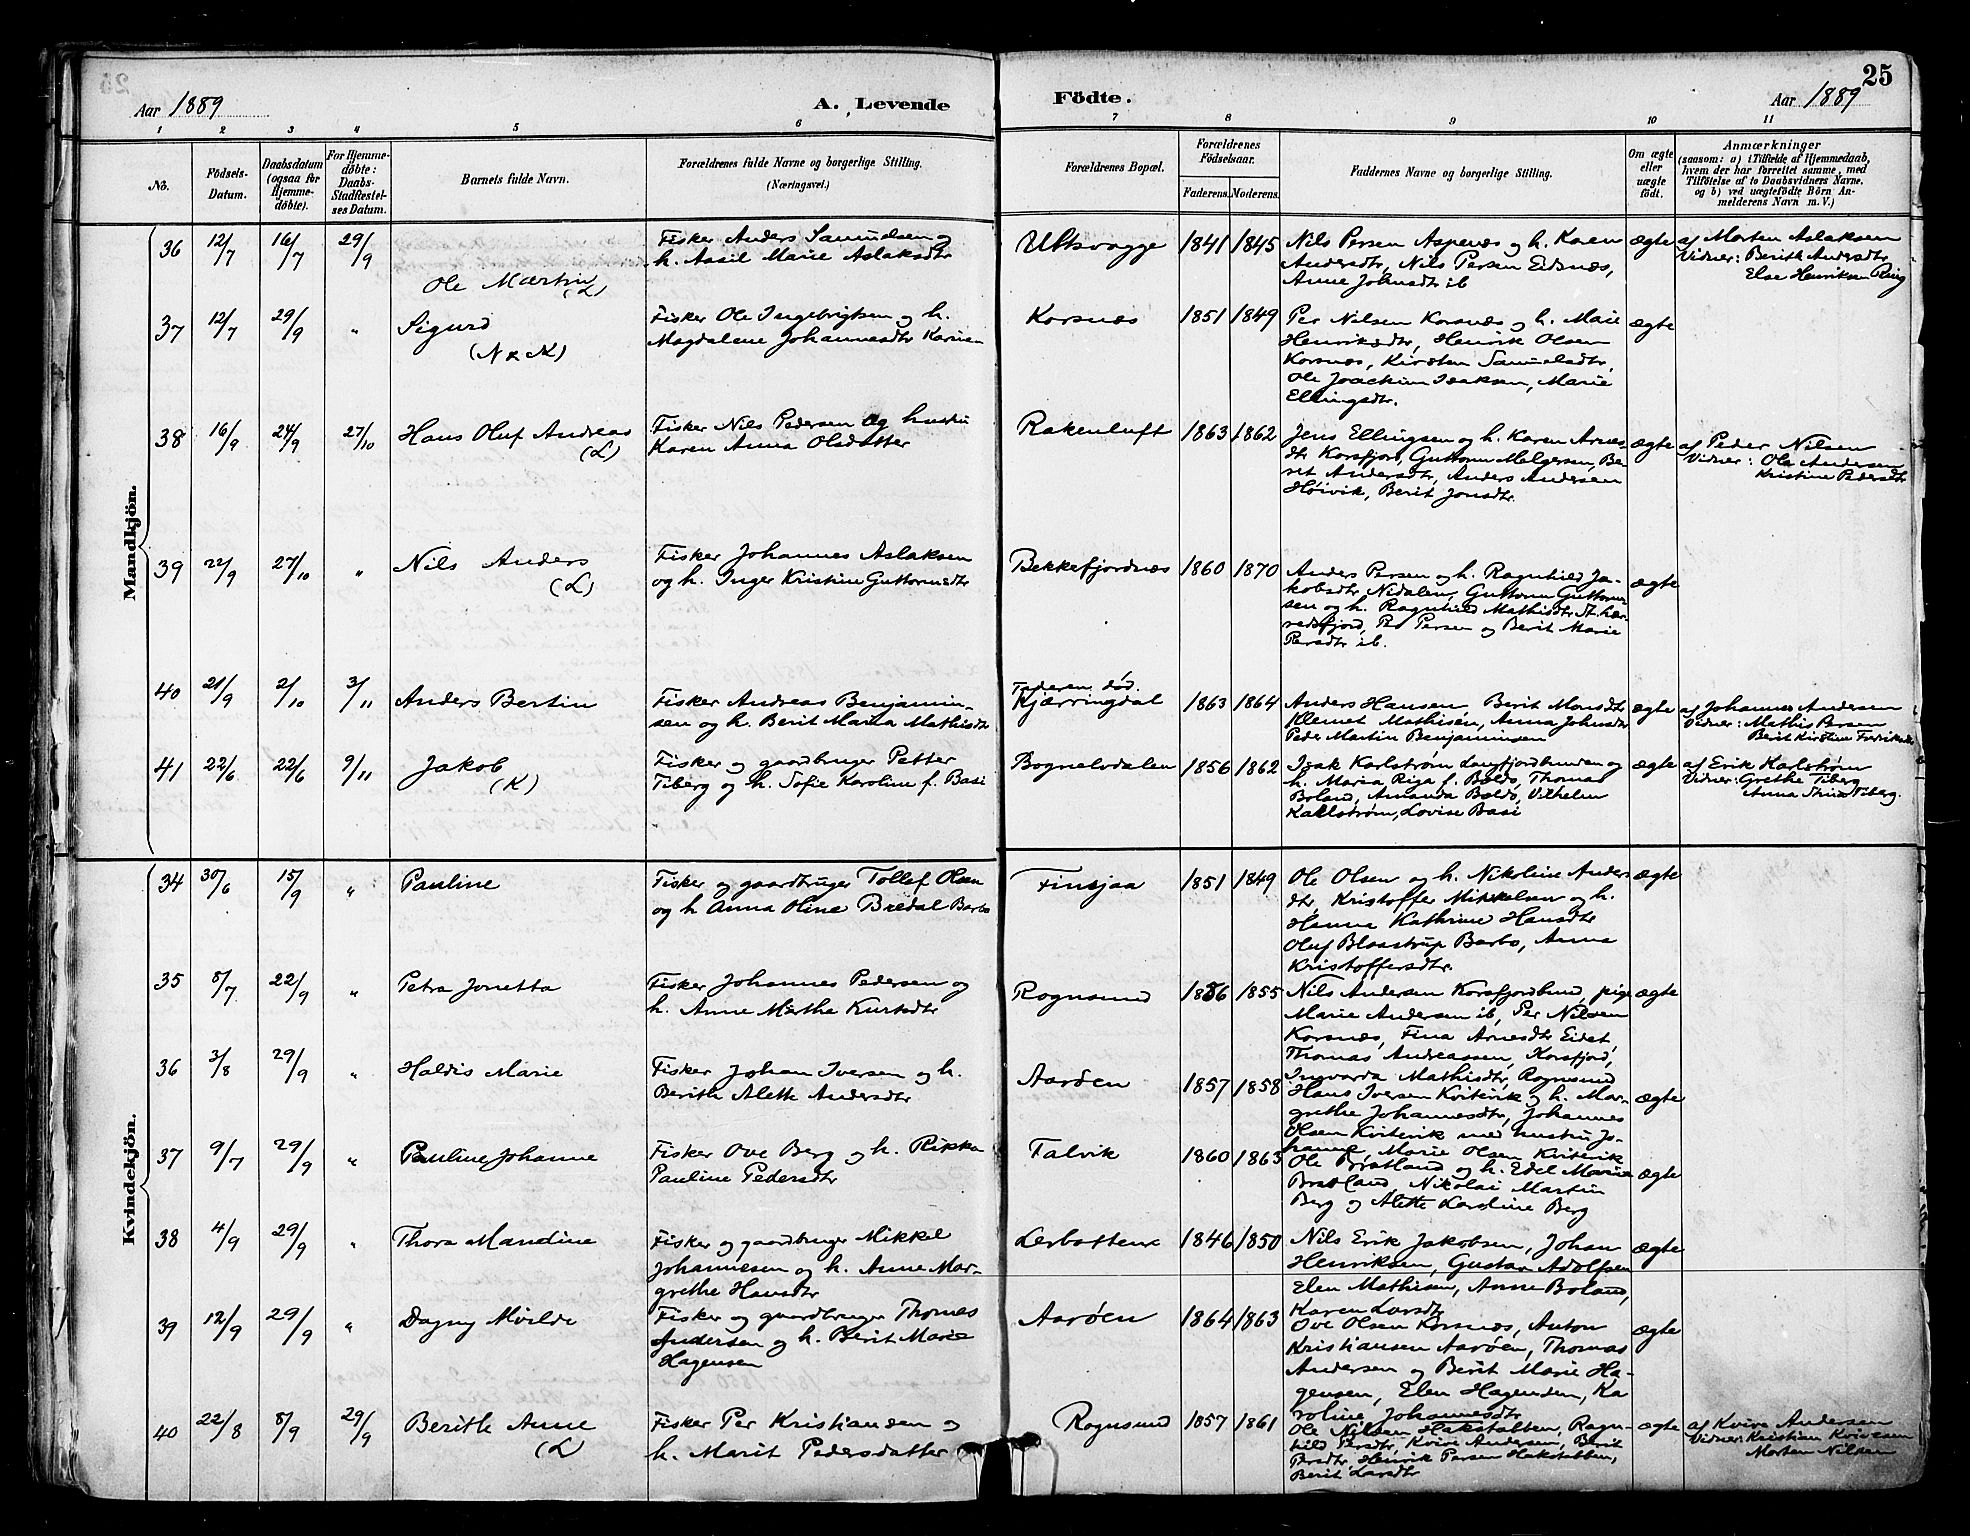 25
Aar 1889
A. Levende Födte.
Aar 1889
1 2 3 4 5 6 7 8 9 10 11
No.
Födsels-Datum.
Daabsdatum (ogsaa for Hjemme-döbte).
For Hjemme-döbte: Daabs-Stadfæstel-ses Datum.
Barnets fulde Navn.
Forældrenes fulde Navne og borgerlige Stilling.
(Næringsvei.)
Forældrenes Bopæl.
Forældrenes Födselsaar.
Faderens. Moderens.
Faddernes Navne og borgerlige Stilling.
Om ægte eller uægte födt.
Anmærkninger
(saasom: a) i Tilfælde af Hjemmedaab,
hvem der har forrettet samme, med
Tilföielse af to Daabsvidners Navne,
og b) ved uægtefödte Börn An-
melderens Navn m. V.)
Mandkjön.
36 12/7 16/7 29/9
Ole Martin
(L)
Fisker Anders Samuelsen og
h. Assil Marie Aslaksdtr
Ultsvagge 1841 1845
Nils Persen Aspenæs og h. Karen
Andersdtr, Nils Persen Eidsnæs,
Anne Johnsdtr ib
ægte
af Morten Aslaksen
Vidner: Berith Andersdtr
Else Henriksen
37 12/7 29/9 "
Sigurd
(N & K)
Fisker Ole Ingebrigtsen og h.
Magdalene Johannesdtr
Korsnæs 1851 1849
Per Nilsen Korsnæs og h. Marie
Henriksdtr, Henrik Olsen
Korsnæs, Kirsten Samuelsdtr,
Ole Joachim Isaksen, Marie
Ellingsdtr.
ægte
38 16/9 24/9 27/10
Hans Oluf Andreas
(L)
Fisker Nils Pedersen og hustru
Karen Anna Olsdatter
Rakenluft 1863 1862
Jens Ellingsen og h. Karen Arnes-
dtr Korsfjord, Guttorm Melgersen, Be-
ret Andersdtr, Anders Andersen
Høivik, Berit Jonsdtr.
ægte
af Peder Nilsen
Vidner: Ole Andersen
Kristine Pedersdtr
39 22/9 27/10 "
Nils Anders
(L)
Fisker Johannes Aslaksen
og h. Inger Kristine Guttormsdtr
Bekkefjordnæs 1860 1870
Anders Persen og h. Ragnhild Ja-
kobsdtr Nidalen, Guttorm Guttorm-
sen og h. Ragnhild Mathisdtr
Per Persen og Berit Marie
Persdtr ib.
ægte
40 21/9 2/10 3/11
Anders Bertin
Fisker Andreas Benjamin-
sen og h. Berit Maria Mathisdtr
Faderen død.
Kjærringdal 1863 1864
Anders Hansen, Berit Monsdtr
Klemet Mathisen, Anna Johnsdtr
Peder Martin Benjaminsen
ægte
af Johannes Andersen
Vidner: Mathis Persen
Berit Kirstine
41 22/6 22/6 9/11
Jakob
(K)
Fisker og gaardbruger Petter
Tiberg og h. Sofie Karoline f. Basi
Bognelvdalen 1856 1862
Isak Karlstrøm Langfjordbunden og
h. Maria Riga f. Baldo, Thomas
Boland, Amanda Baldo, Vilhelm
Karlstrøm, Lovise Basi
ægte
af Erik Karlstrøm
Vidner: Grethe Tiberg
Anna Tiberg.
Kvindekjön.
34 30/6 15/9 "
Pauline
Fisker og gaardbruger Tollef Olsen
og h Anna Oline Bredal Barbo
Finsjaa 1851 1849
Ole Olsen og h. Nikoline Anders
dtr, Kristoffer Mikkelsen og h.
Hanna Kathrine Hansdtr
Oluf Blaastrup Barbo, Anna
Kristoffersdtr.
ægte
35 8/7 22/9 "
Petra Jonetta
Fisker Johannes Pedersen og
h. Anne Marthe Kurtsdtr
Rognsund 1856 1855
Nils Andersen Korsfjordbund, pige
Marie Andersen ib, Per Nilsen
Korsnæs, Fina Arnesdtr Eidet,
Thomas Andreassen, Korsfjord,
Ingvarda Mathisdtr, Rognsund
ægte
36 3/8 29/9 "
Haldis Marie
Fisker Johan Iversen og h.
Berith Alette Andersdtr
Aarøen 1857 1858
Hans Iversen Kvitevik og h. Mar-
grethe Johannesdtr, Johannes
Olsen Kvitevik med hustru Jo-
hanne, Marie Olsen Kvitevik
ægte
37 9/7 29/9 "
Pauline Johanne
Fisker Ove Berg og h. Rikka
Pauline Pedersdtr
Talvik 1860 1863
Ole Bratland og h. Edel Marie
Bratland, Nikolai Martin
Berg og Alette Karoline Berg
ægte
38 4/9 29/9 "
Thora Mandine
Fisker og gaardbruger Mikkel
Johannesen og h. Anne Mar-
grethe Hansdtr
Lerbotten 1846 1850
Nils Erik Jakobsen, Johan
Henriksen, Gustav Adolfsen
Elen Mathisen, Anne Boland,
Karen Larsdtr
ægte
39 12/9 29/9 "
Dagny Møilde
Fisker og gaardbruger Thomas
Andersen og h. Berit Marie
Hagensen
Aarøen 1864 1863
Ove Olsen Korsnæs, Anton
Kristiansen Aarøen, Thomas
Andersen og Berit Marie Ha-
gensen, Elen Hagensen, Ka
roline Johannesdtr
ægte
40 22/8 8/9 29/9
Berith Anne
(L)
Fisker Per Kristiansen og
h. Marit Pedersdatter
Rognsund 1857 1861
Ole Nilsen Hakstabben, Ragn-
hild Persdtr, Kvive Andersen, Berit
Persdtr, Henrik Persen Hakstabben,
Berit Larsdtr
ægte
af Kvive Andersen
Vidner: Kristian Kvivesen
Morten Nilsen